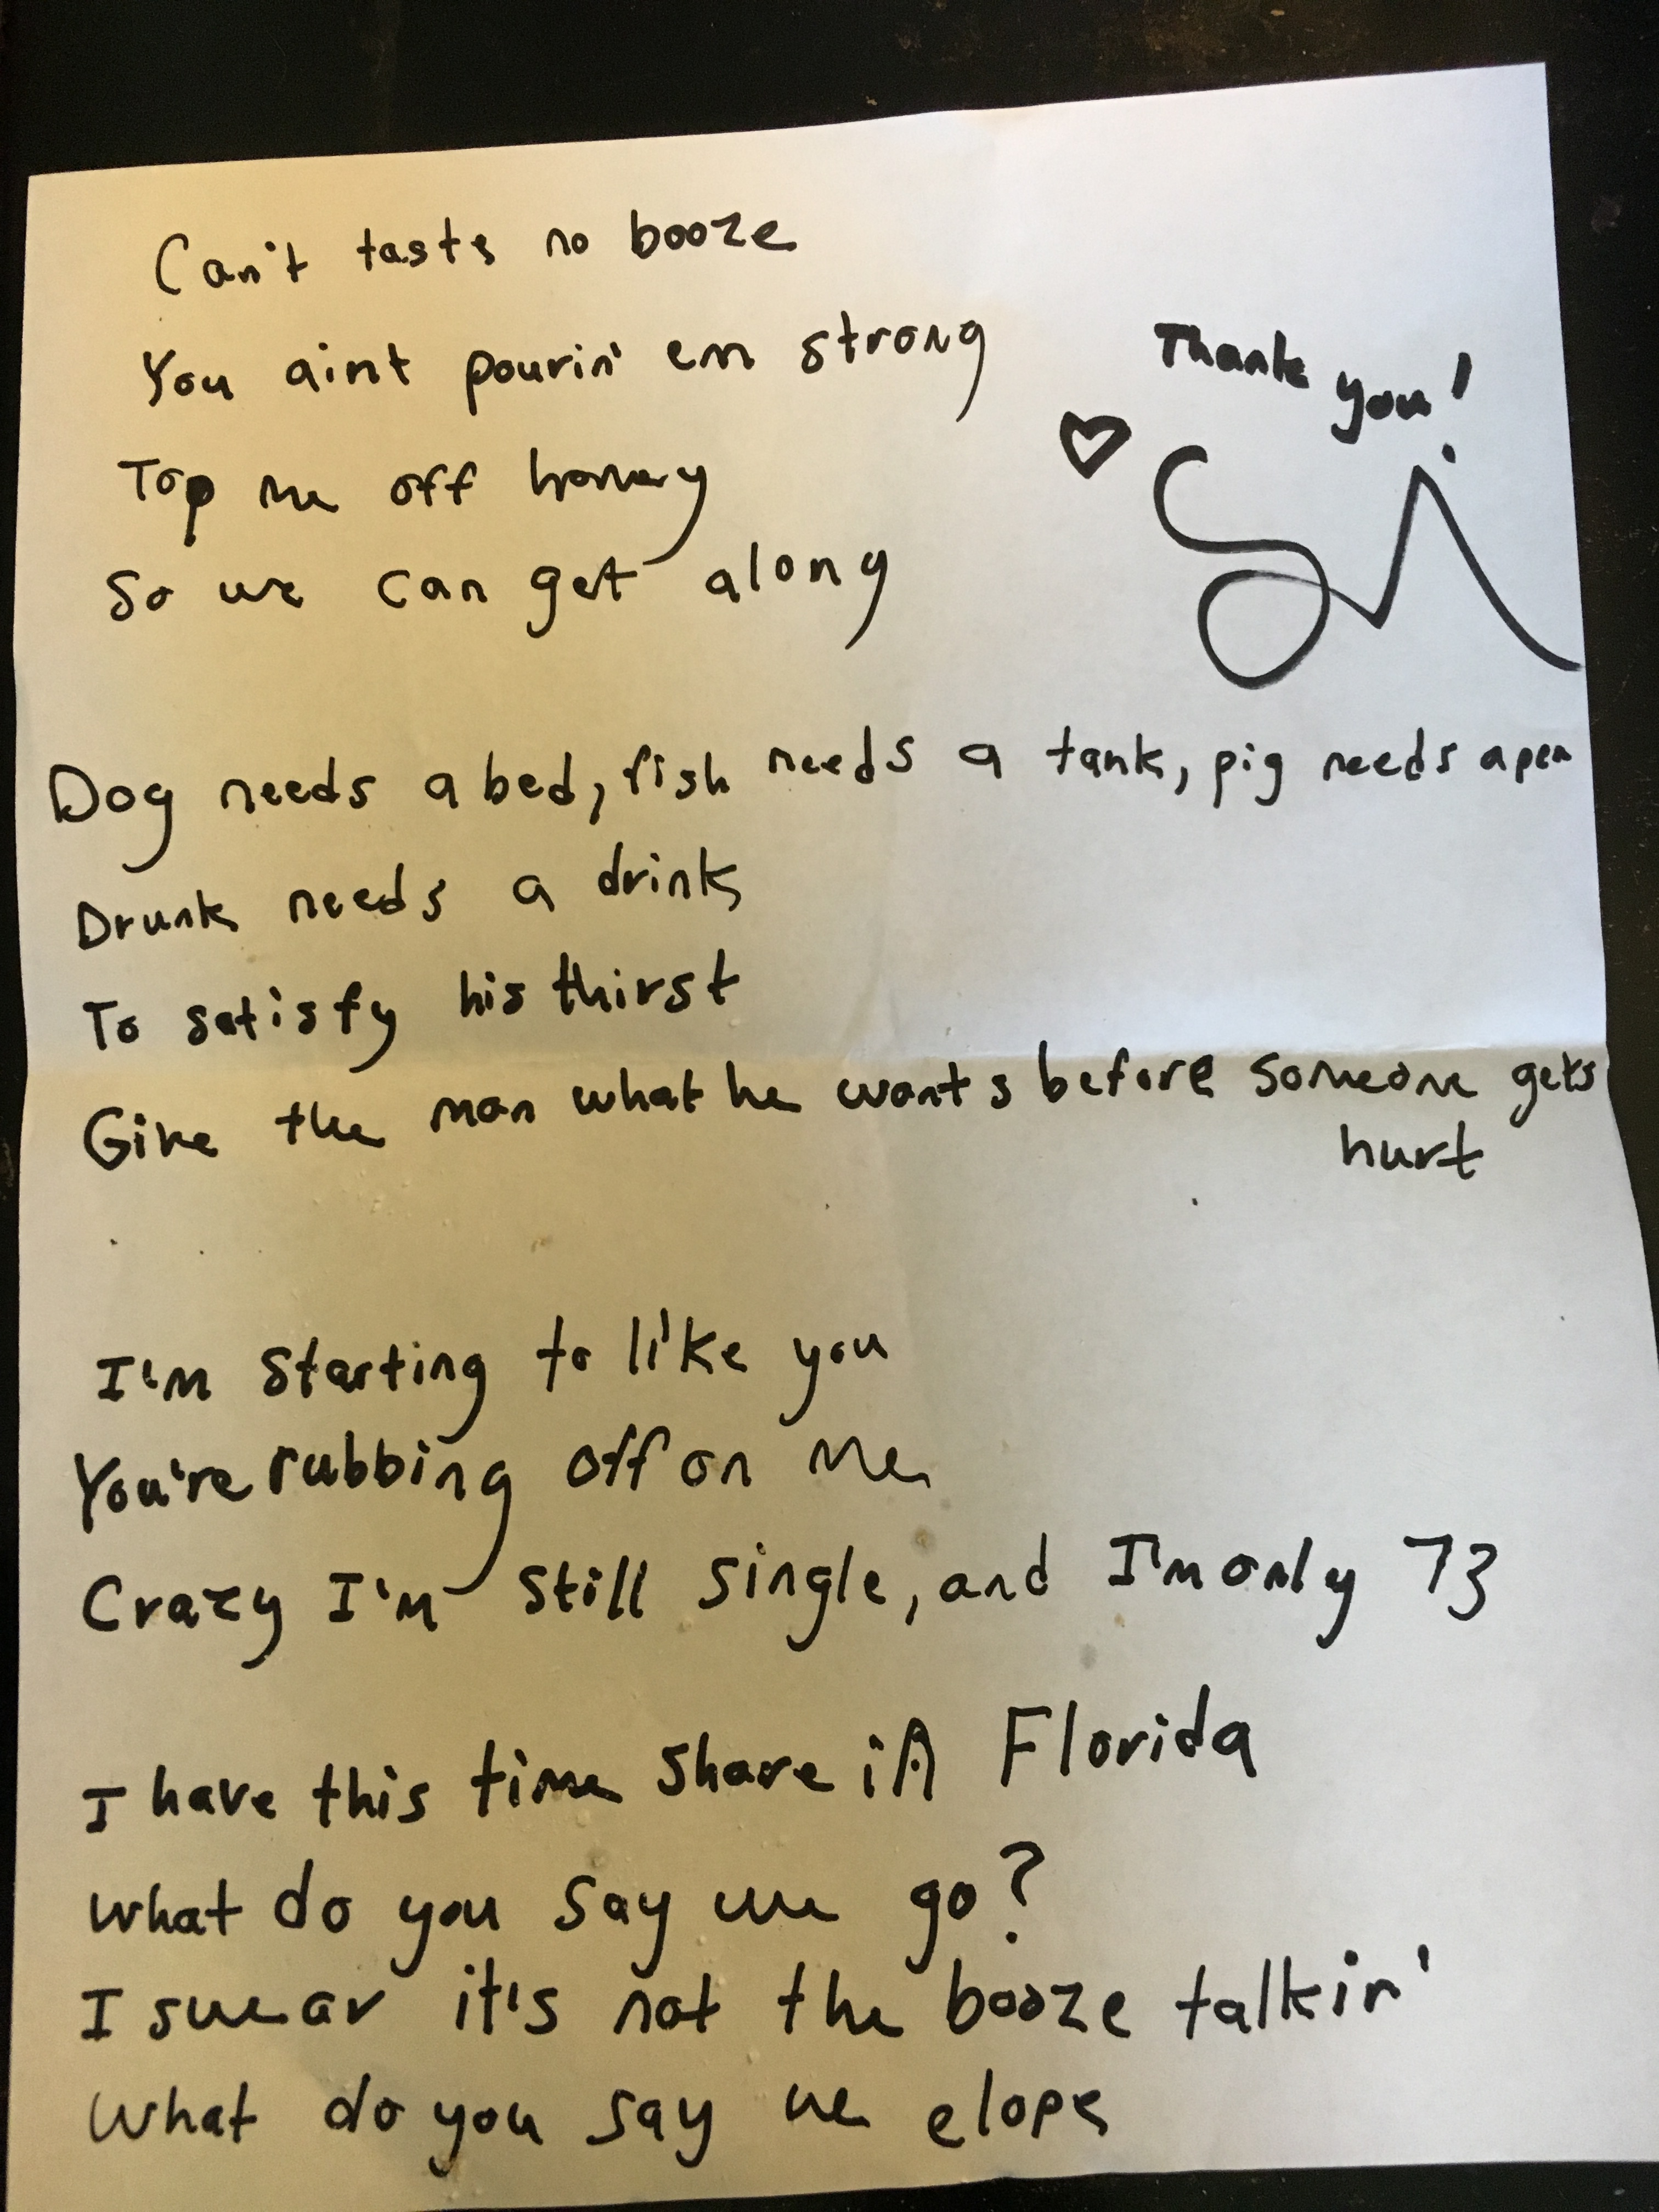 Can't taste no booze
You aint pourin' em strong
Thank you!
Top me off honey
So we can get along
Dog needs a bed, fish needs a tank, pig needs a pen
Drunk needs a drink
To satisfy his thirst
Give the man what he wants before someone gets
hurt
I'm starting to like you
You're rubbing off on me
Crazy I'm still single, and I'm only 73
I have this time share in Florida
What do you say we go?
I swear it's not the booze talkin'
What do you say we elope